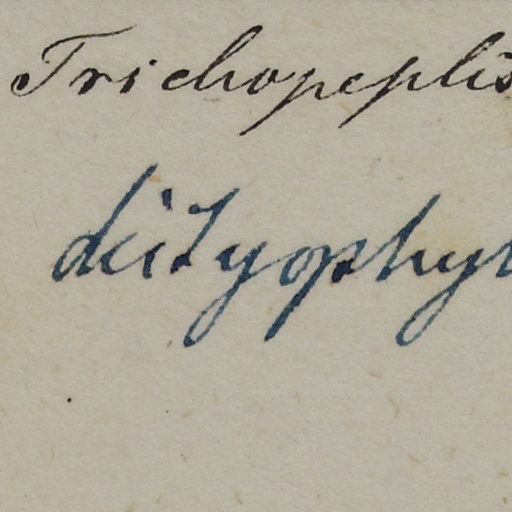 Trichopeplis
dictyophy